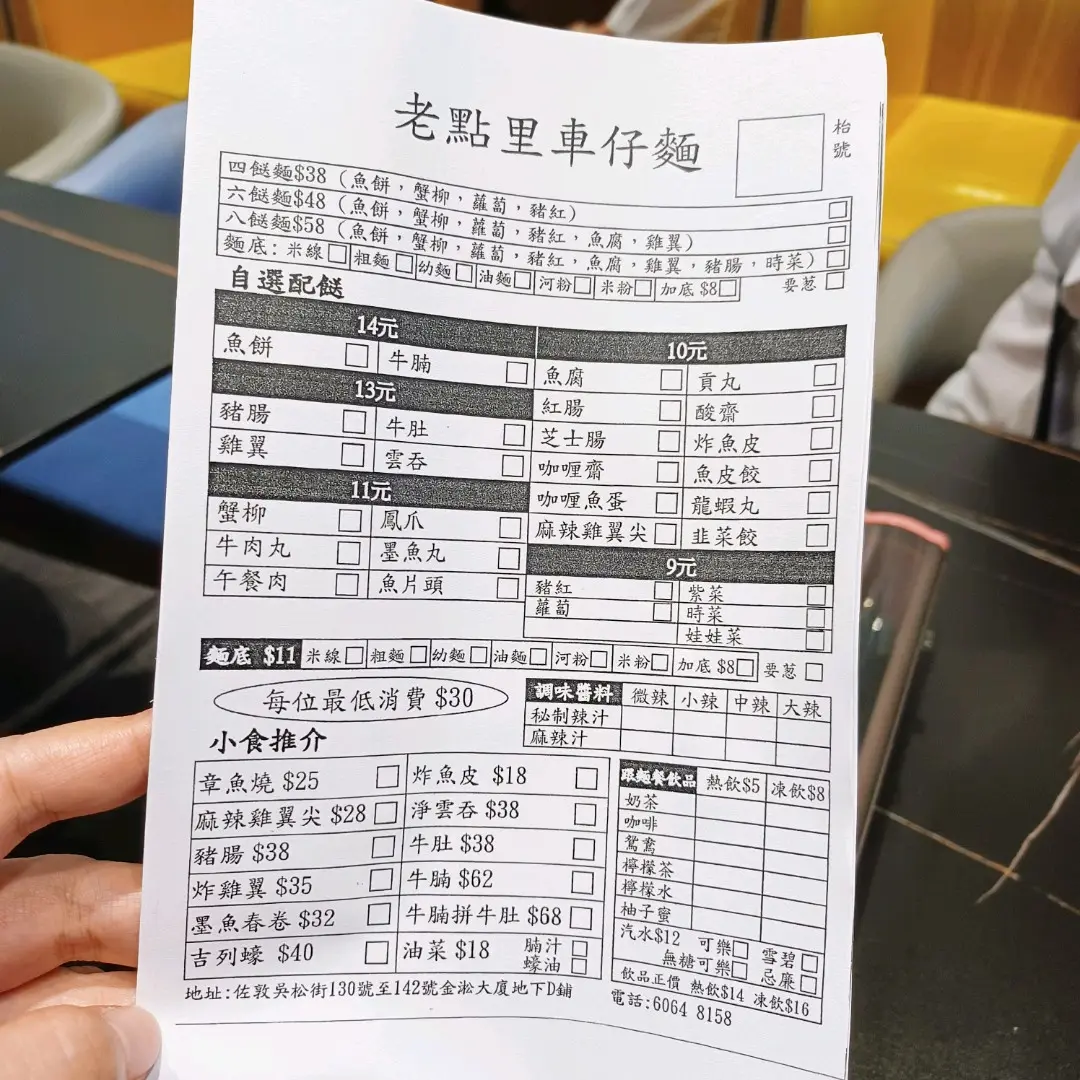 老點里車仔麵
枱號
四餸麵$38 (魚餅，蟹柳，蘿蔔，豬紅)
六餸麵$48 (魚餅，蟹柳，蘿蔔，豬紅，魚腐，雞翼)
八餸麵$58 (魚餅，蟹柳，蘿蔔，豬紅，魚腐，雞翼，豬腸，時菜)
麵底: 米線 粗麵 幼麵 油麵 河粉 米粉 加底 $8 要葱
自選配餸
14元
魚餅 牛腩
13元
豬腸 牛肚
雞翼 雲吞
11元
蟹柳 鳳爪
牛肉丸 墨魚丸
午餐肉 魚片頭
10元
魚腐 貢丸
紅腸 酸齋
芝士腸 炸魚皮
咖喱齋 魚皮餃
咖喱魚蛋 龍蝦丸
麻辣雞翼尖 韭菜餃
9元
豬紅 紫菜
蘿蔔 時菜
娃娃菜
麵底 $11 米線 粗麵 幼麵 油麵 河粉 米粉 加底 $8 要葱
每位最低消費 $30
調味醬料 微辣 小辣 中辣 大辣
秘制辣汁
麻辣汁
小食推介
章魚燒 $25 炸魚皮 $18
麻辣雞翼尖 $28 淨雲吞 $38
豬腸 $38 牛肚 $38
炸雞翼 $35 牛腩 $62
墨魚春卷 $32 牛腩拼牛肚 $68
吉列蠔 $40 油菜 $18 腩汁 蠔油
跟麵餐飲品 熱飲$5 凍飲$8
奶茶
咖啡
鴛鴦
檸檬茶
檸檬水
柚子蜜
汽水$12 可樂 雪碧
無糖可樂 忌廉
飲品正價 熱飲$14 凍飲$16
地址:佐敦吳松街130號至142號金淞大廈地下D舖
電話:6064 8158